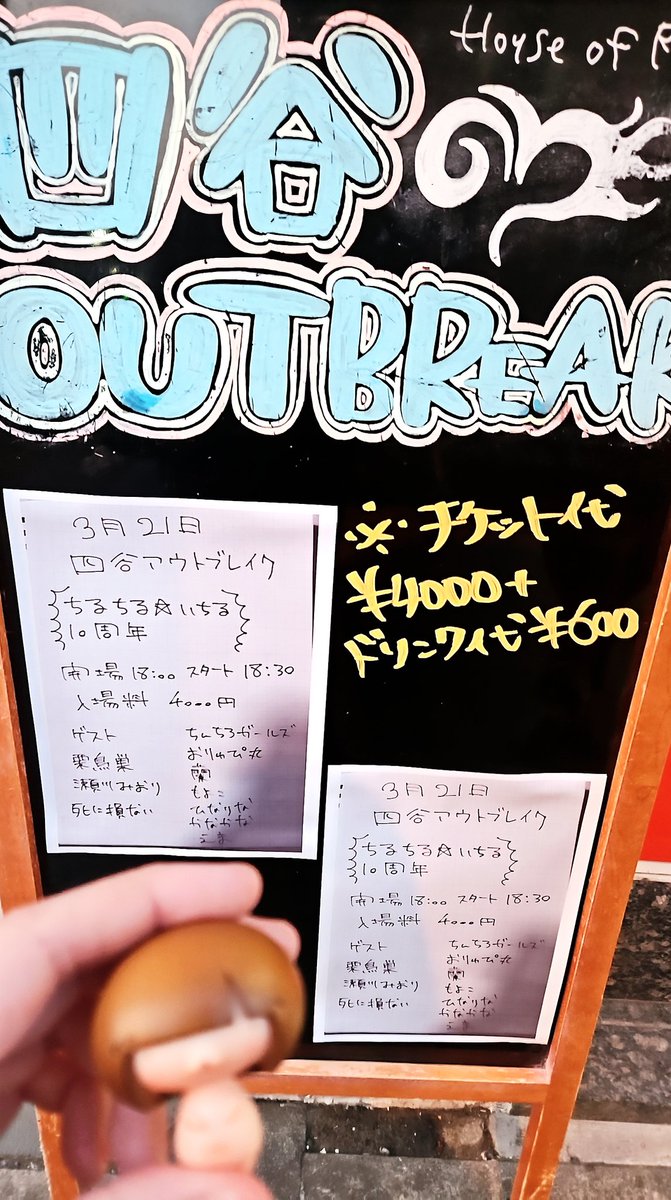 House of R
四谷
OUTBREAK
3月21日
四谷アウトブレイク
ちるちる☆いちる
10周年
開場 18:00 スタート 18:30
入場料 4000円
ゲスト ちんちろガールズ
巣 おりゅぴ丸
瀬川みおり もよこ
死に損ない ひなりな
かなかな
※チケット代
¥4000+
ドリンク代¥600
3月21日
四谷アウトブレイク
ちるちる☆いちる
10周年
開場 18:00 スタート 18:30
入場料 4000円
ゲスト ちんちろガールズ
巣 おりゅぴ丸
瀬川みおり もよこ
死に損ない ひなりな
かなかな